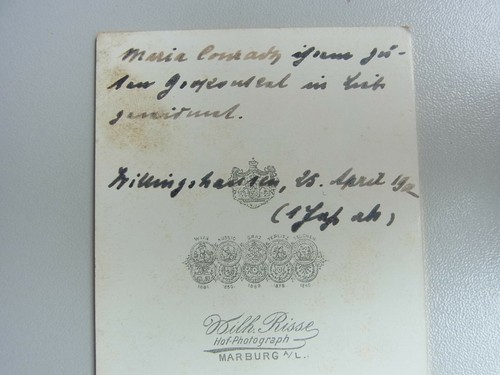 Maria Conradi ihrem gu-
ten Großonkel in Liebe
gewidmet.
Willingshausen, 25. April 19
(1 Jahr alt)
Wilh. Risse
Hof-Photograph
MARBURG A/L.